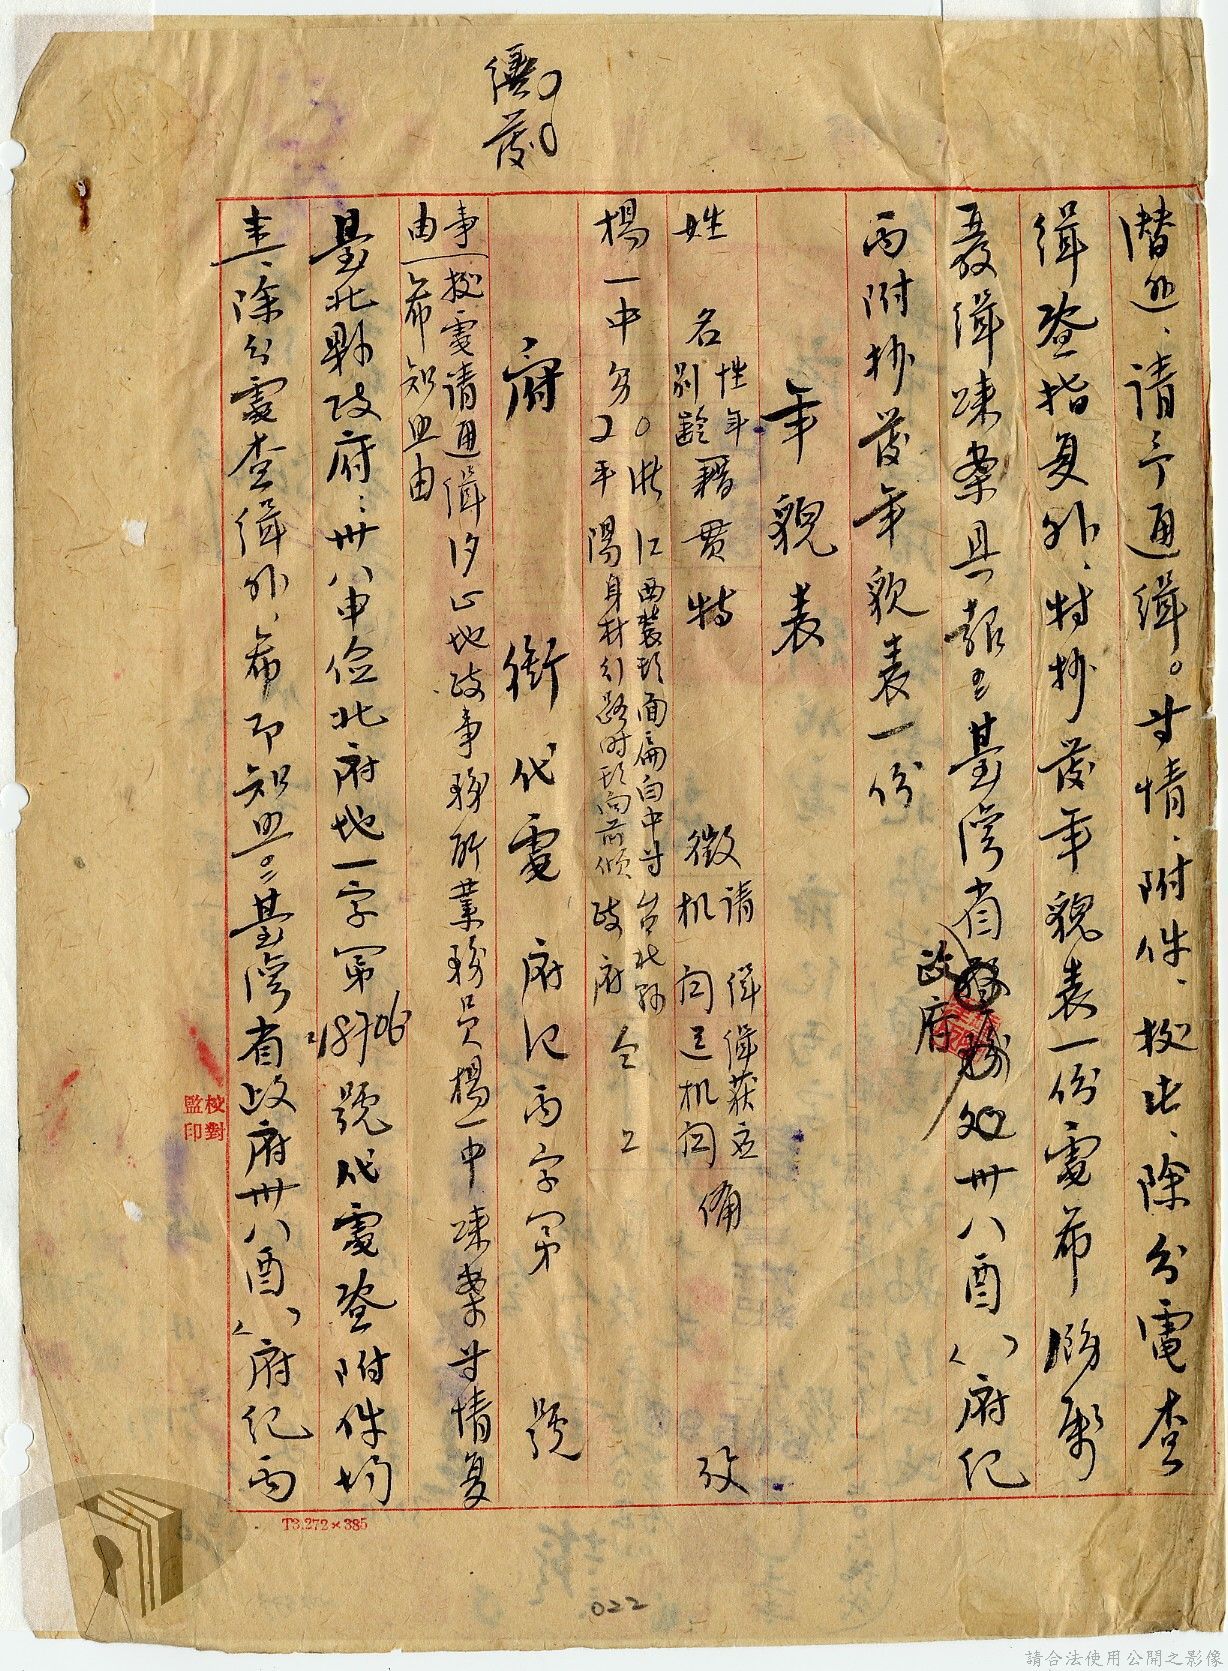 潛逃、請予通緝。等情、附件、據此、除分電查
緝暨指复外、特抄發年貌表一份電希飭屬
嚴緝疎案具報〇臺灣省政府卅八酉()府紀
丙附抄發年貌表一份
年貌表
姓名 性別 年齡 籍貫 特徵 請緝机関 緝获应送机関 備攷
楊一中 男 20 浙江平陽 西裝頭面扁白中等身材行路時頭向前傾 台北縣政府 仝上
府銜代電 府紀丙字第 號
事由 據電請通緝汐止地政事務所業務員楊一中疎案等情复希知照由
臺北縣政府:卅八申儉北府地一字第 號代電暨附件均
悉、除分電查緝外、希即知照。臺灣省政府卅八酉()府紀丙
繕發
校對
監印
T3.272×385
022
請合法使用公開之影像